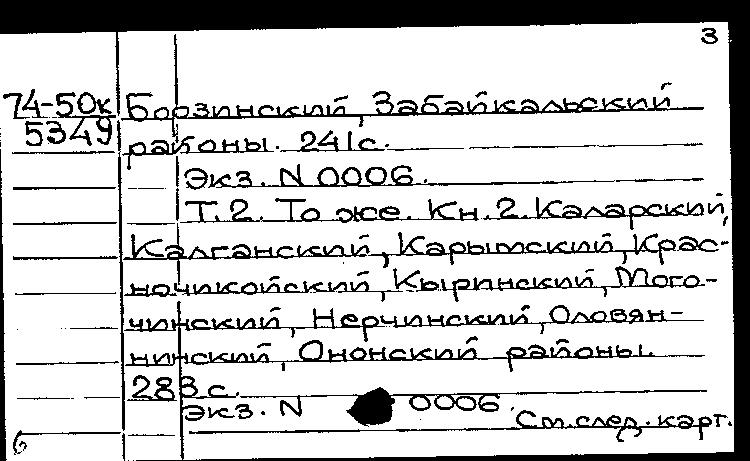 3
74-50к Борзинский, Забайкальский
5349 районы. 241с.
Экз. N 0006.
Т.2. То же. Кн.2. Каларский,
Калганский, Карымский, Крас-
ночикойский, Кыринский, Мого-
чинский, Нерчинский, Оловян-
нинский, Ононский районы.
283с.
Экз. N 0006.
См. след. карт.
6